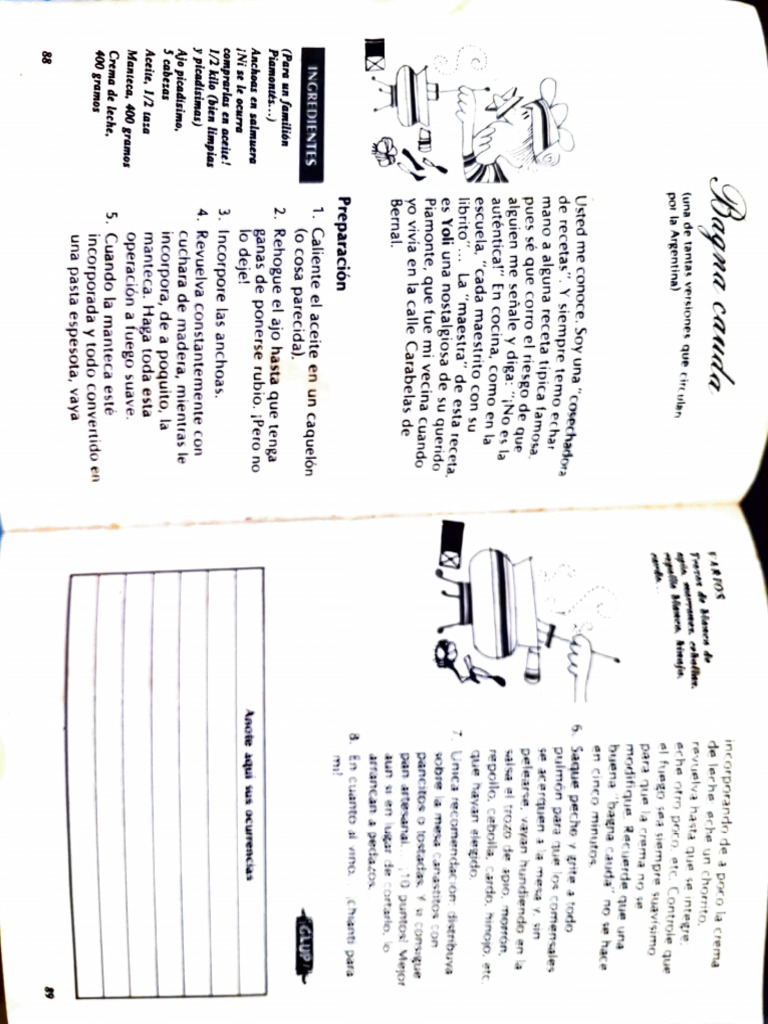 Bagna cauda
(una de tantas versiones que circulan
por la Argentina)
Usted me conoce. Soy una "cosechadora
de recetas". Y siempre temo echar
mano a alguna receta típica famosa,
pues sé que corro el riesgo de que
alguien me señale y diga: "¡No es la
auténtica!" En cocina, como en la
escuela, "cada maestrito con su
librito"... La "maestra" de esta receta,
es Yoli una nostalgiosa de su querido
Piamonte, que fue mi vecina cuando
yo vivía en la calle Carabelas de
Bernal.
INGREDIENTES
(Para un familión
Piamontés...)
Anchoas en salmuera
¡Ni se le ocurra
comprarlas en aceite!
1/2 kilo (bien limpias
y picadísimas)
Ajo picadísimo,
5 cabezas
Aceite, 1/2 taza
Manteca, 400 gramos
Crema de leche,
400 gramos
Preparación
1. Caliente el aceite en un caquelón
(o cosa parecida).
2. Rehogue el ajo hasta que tenga
ganas de ponerse rubio. ¡Pero no
lo deje!
3. Incorpore las anchoas.
4. Revuelva constantemente con
cuchara de madera, mientras le
incorpora, de a poquito, la
manteca. Haga toda esta
operación a fuego suave.
5. Cuando la manteca esté
incorporada y todo convertido en
una pasta espesota, vaya
88
VARIOS
Trozos de blanco de
apio, morrones, cebollas,
repollo blanco, hinojo,
cardo...
incorporando de a poco la crema
de leche: eche un chorrito,
revuelva hasta que se integre,
eche otro poco, etc. Controle que
el fuego sea siempre suavísimo
para que la crema no se
modifique. Recuerde que una
buena "bagna cauda" no se hace
en cinco minutos.
6. Saque pecho y grite a todo
pulmón para que los comensales
se acerquen a la mesa y, sin
pelearse, vayan hundiendo en la
salsa el trozo de apio, morrón,
repollo, cebolla, cardo, hinojo, etc.
que hayan elegido.
7. Única recomendación: distribuya
sobre la mesa canastitos con
pancitos o tostadas. Y si consigue
pan artesanal... ¡10 puntos! Mejor
aun si en lugar de cortarlo, lo
arrancan a pedazos.
8. En cuanto al vino... ¡chianti para
mí!
¡GLUP!
Anote aquí sus ocurrencias
89